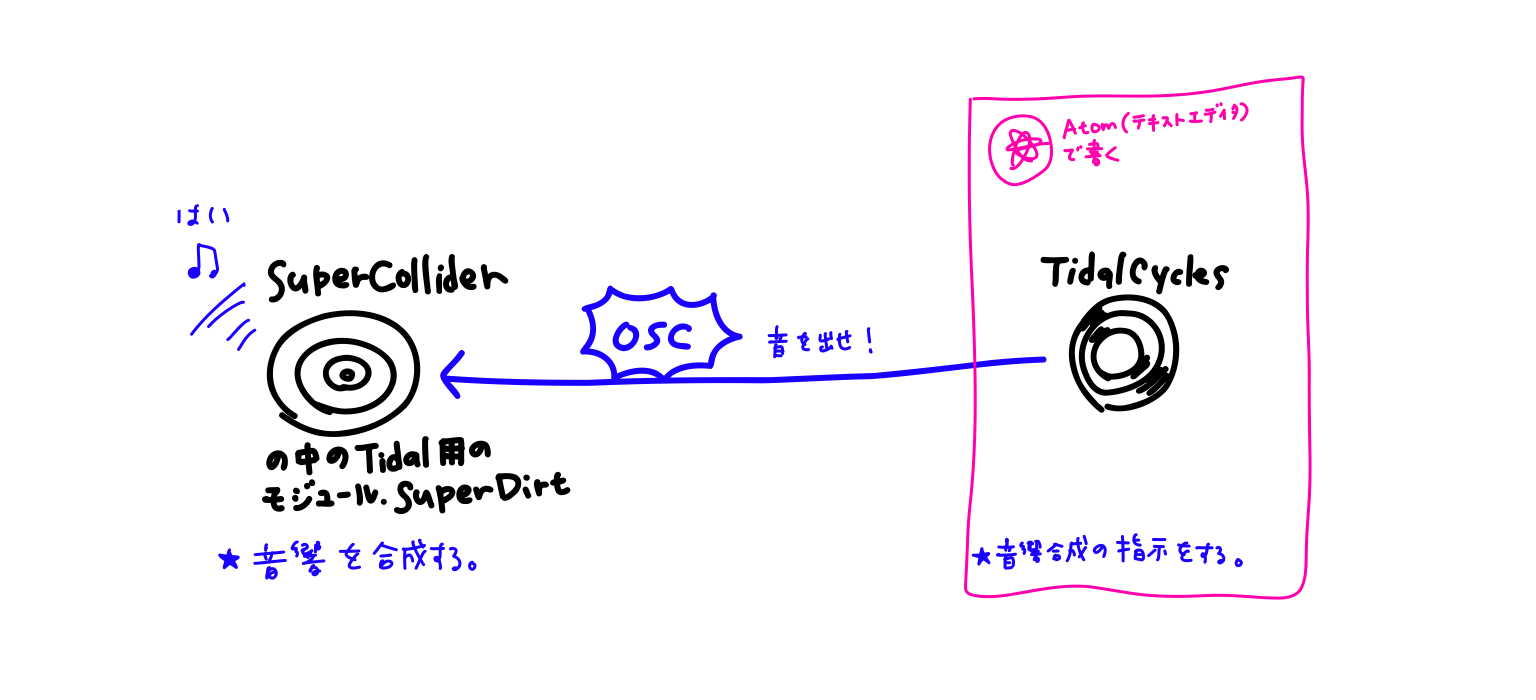 はい
SuperCollider
の中のTidal用の
モジュール.SuperDirt
★音響を合成する。
OSC
音を出せ!
Atom(テキストエディタ)
で書く
TidalCycles
★音響合成の指示をする。